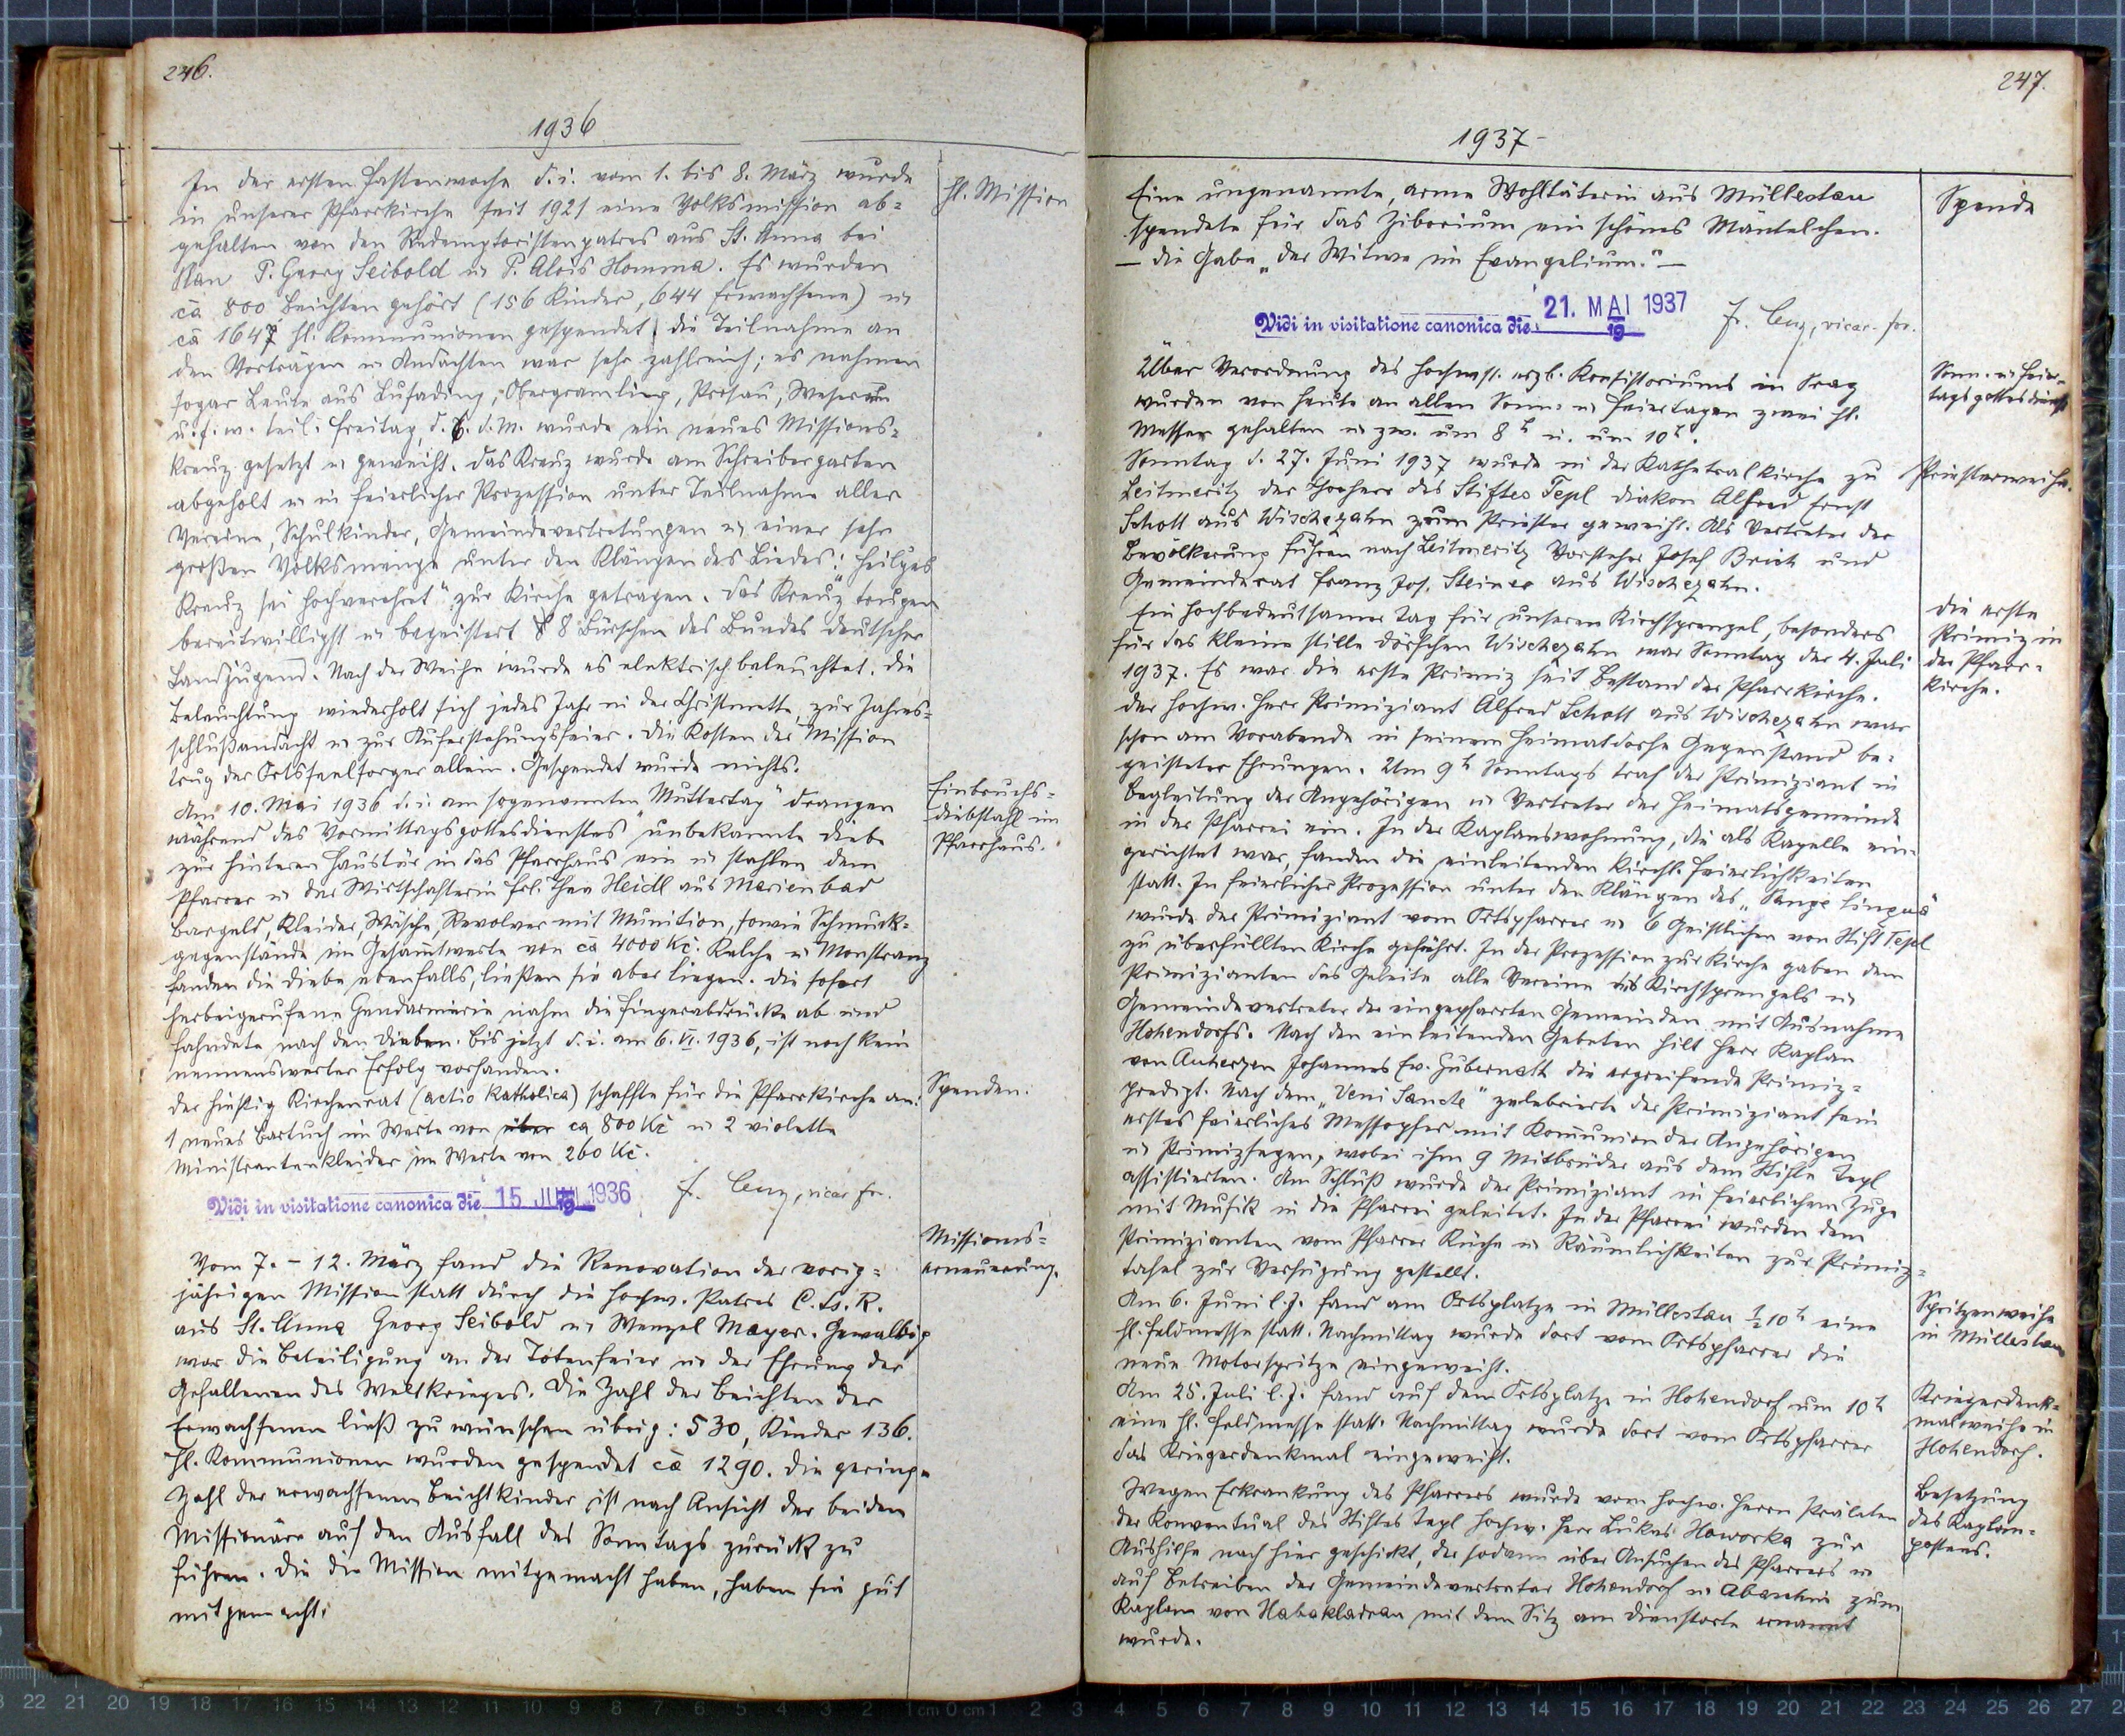 246.
1936
In der ersten Fastenwoche d. i. vom 1. bis 8. März wurde
in unserer Pfarrkirche seit 1921 eine Volksmission ab=
gehalten von den Redemptoristenpatres aus St. Anna bei
Plan P. Georg Seibold u P. Alois Homma. Es wurden
ca 800 Beichten gehört (156 Kinder, 644 Erwachsene) u
ca 1647 hl. Kommunionen gespendet, die Teilnahme an
den Vorträgen u Andachten war sehr zahlreich; es nahmen
sogar Leute aus Kusading, Obergramling, Prosau, Weserau
u. s. w. teil. Freitag, d. 6. d. M. wurde ein neues Missions=
kreuz gesetzt u geweiht. Das Kreuz wurde am Schreibergarten
abgeholt u in feierlicher Prozession unter Teilnahme aller
Vereine, Schulkinder, Gemeindevertretungen u einer sehr
großen Volksmenge unter den Klängen des Liedes: "Heilges
Kreuz sei hochverehret" zur Kirche getragen. Das Kreuz trugen
bereitwilligst u begeistert 8 Burschen des Bundes deutscher
Landjugend. Nach der Weihe wurde es elektrisch beleuchtet. Die
Beleuchtung wiederholt sich jedes Jahr in der Christmette, zur Jahres=
schlußandacht u zur Auferstehungsfeier. Die Kosten der Mission
trug der Ortsseelsorger allein. Gespendet wurde nichts.
Am 10. Mai 1936 d. i. am sogenannten "Muttertag" drangen
während des Vormittagsgottesdienstes unbekannte Diebe
zur hinteren Haustür in das Pfarrhaus ein u stahlen dem
Pfarrer u der Wirtschafterin Frl. Thea Heidl aus Marienbad
Bargeld, Kleider, Wäsche, Revolver mit Munition, sowie Schmuck=
gegenstände im Gesamtwerte von ca 4000 Kč. Kelche u Monstranz
fanden die Diebe ebenfalls, ließen sie aber liegen. Die sofort
herbeigerufene Gendarmerie nahm die Fingerabdrücke ab und
fahndete nach den Dieben. Bis jetzt d. i. am 6. VI. 1936, ist noch kein
nennenswerter Erfolg vorhanden.
Der hiesige Kirchenrat (actio katholica) schaffte für die Pfarrkirche an:
1 neues Bartuch im Werte von über ca 800 Kč u 2 violette
Ministrantenkleider im Werte von 260 Kč.
Vidi in visitatione canonica die 15 JUNI 1936
Vom 7. - 12. März fand die Renovation der vorig=
jährigen Mission statt durch die hochw. Patres C. Ss. R.
aus St. Anna Georg Seibold u Wenzel Mayer. Gewaltig
war die Beteiligung an der Totenfeier u der Ehrung der
Gefallenen des Weltkrieges. Die Zahl der Beichten der
Erwachsenen ließ zu wünschen übrig: 530, Kinder 136.
Hl. Kommunionen wurden gespendet ca 1290. Die geringe
Zahl der erwachsenen Beichtkinder ist nach Ansicht der beiden
Missionäre auf den Ausfall des Sonntags zurück zu
führen. Die die Mission mitgemacht haben, haben sie gut
mitgemacht.
Hl. Mission
Einbruchs=
diebstahl im
Pfarrhaus.
Spenden.
Missions=
erneuerung.
247.
1937
Eine ungenannte, arme Wohltäterin aus Müllestau
spendete für das Ziborium ein schönes Mäntelchen.
- Die Gabe "der Witwe im Evangelium." -
Vidi in visitatione canonica die 21. MAI 1937
Über Verordnung des hochwst. erzb. Konsistoriums in Prag
wurden von heute an allen Sonn- u Feiertagen zwei hl.
Messen gehalten u zw. um 8 h u. um 10 h.
Sonntag d. 27. Juni 1937 wurde in der Kathetralkirche zu
Leitmeritz der Chorherr des Stiftes Tepl Diakon Alfred Ernst
Schott aus Wischezahn zum Priester geweiht. Als Vertreter der
Bevölkerung fuhren nach Leitmeritz Vorsteher Josef Brich und
Gemeinderat Franz Jos. Steiner aus Wischezahn.
Ein hochbedeutsamer Tag für unseren Kirchsprengel, besonders
für das kleine stille Dörfchen Wischezahn war Sonntag der 4. Juli
1937. Es war die erste Primiz seit Bestand der Pfarrkirche.
Der hochw. Herr Primiziant Alfred Schott aus Wischezahn war
schon am Vorabende in seinem Heimatdorfe Gegenstand be=
geisteter Ehrungen. Um 9 h Sonntags traf der Primiziant in
Begleitung der Angehörigen u Vertreter der Heimatsgemeinde
in der Pfarrei ein. In der Kaplanswohnung, die als Kapelle ein=
gerichtet war, fanden die einleitenden kirchl. Feierlichkeiten
statt. In feierlicher Prozession unter den Klängen des "Pange lingua"
wurde der Primiziant vom Ortspfarrer u 6 Geistlichen von Stift Tepl
zu überfüllten Kirche geführt. In der Prozession zur Kirche gaben dem
Primizianten das Geleite alle Vereine des Kirchsprengels u
Gemeindevertreter der eingepfarrten Gemeinden mit Ausnahme
Hohendorfs. Nach den einleitenden Gebeten hilt Herr Kaplan
von Auherzen Johannes Ev. Hubernath die ergreifende Primiz=
predigt. Nach dem "Veni Sancte" zelebrierte der Primiziant sein
erstes feierliches Messopfer mit Kommunion der Angehörigen
u Primizsegen, wobei ihm 9 Mitbrüder aus dem Stifte Tepl
assistierten. Am Schluß wurde der Primiziant in feierlichem Zuge
mit Musik in die Pfarrei geleitet. In der Pfarrei wurden dem
Primizianten vom Pfarrer Küche u Räumlichkeiten zur Primiz=
tafel zur Verfügung gestellt.
Am 6. Juni l. J. fand am Ortsplatze in Müllestau ½ 10 h eine
hl. Feldmesse statt. Nachmittag wurde dort vom Ortspfarrer die
neue Motorspritze eingeweiht.
Am 25. Juli l. J. fand auf dem Ortsplatze in Hohendorf um 10 h
eine hl. Feldmesse statt. Nachmittag wurde dort vom Ortspfarrer
das Kriegerdenkmal eingeweiht.
Wegen Erkrankung des Pfarrers wurde vom hochw. Herrn Prälaten
der Konventual des Stiftes Tepl hochw. Herr Lukas Haworka zur
Aushilfe nach hier geschickt, der sodann über Ansuchen des Pfarrers u
auf Betreiben der Gemeindevertreter Hohendorf u Abaschin zum
Kaplan von Habakladrau mit dem Sitz am Dienstorte ernannt
wurde.
Spende
Sonn- u Feier=
tagsgottesdienst
Priesterweihe.
Die erste
Primiz in
der Pfarr=
kirche.
Spritzenweihe
in Müllestau
Kriegerdenk=
malweihe in
Hohendorf.
Besetzung
des Kaplan=
postens.